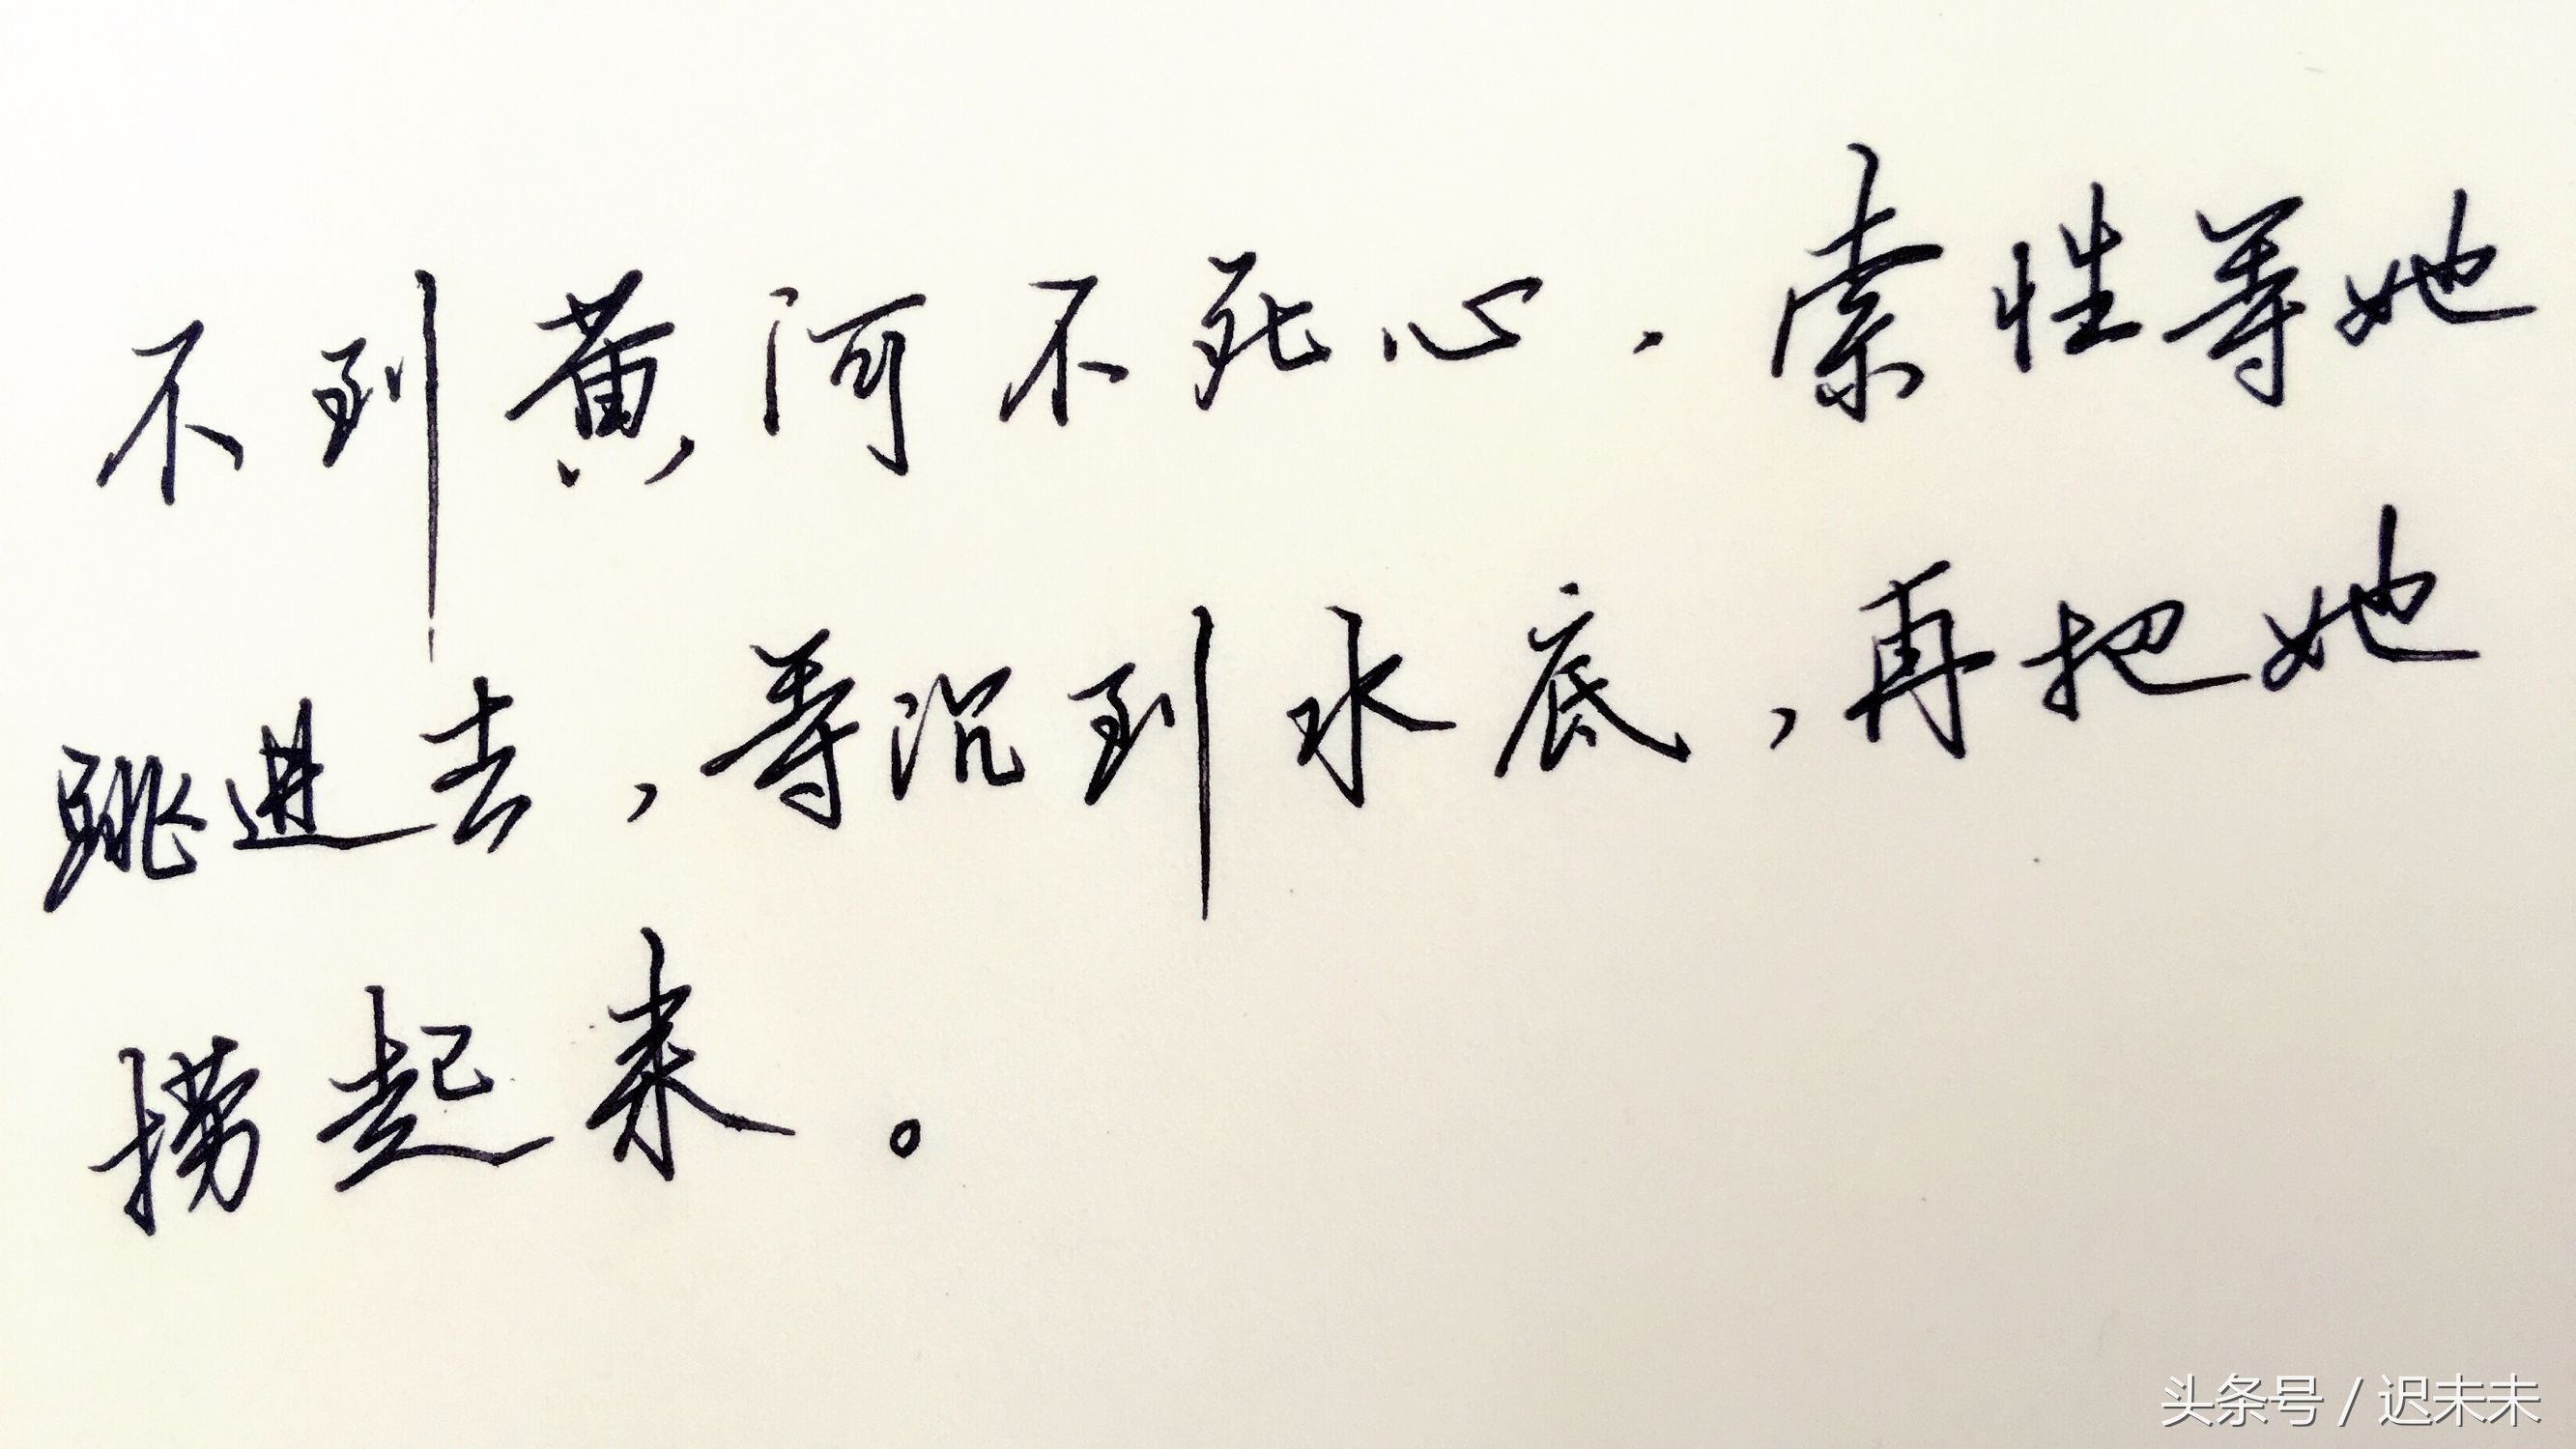 不到黄河不死心，索性等她
跳进去，等沉到水底，再把她
捞起来。
头条号 / 迟未未